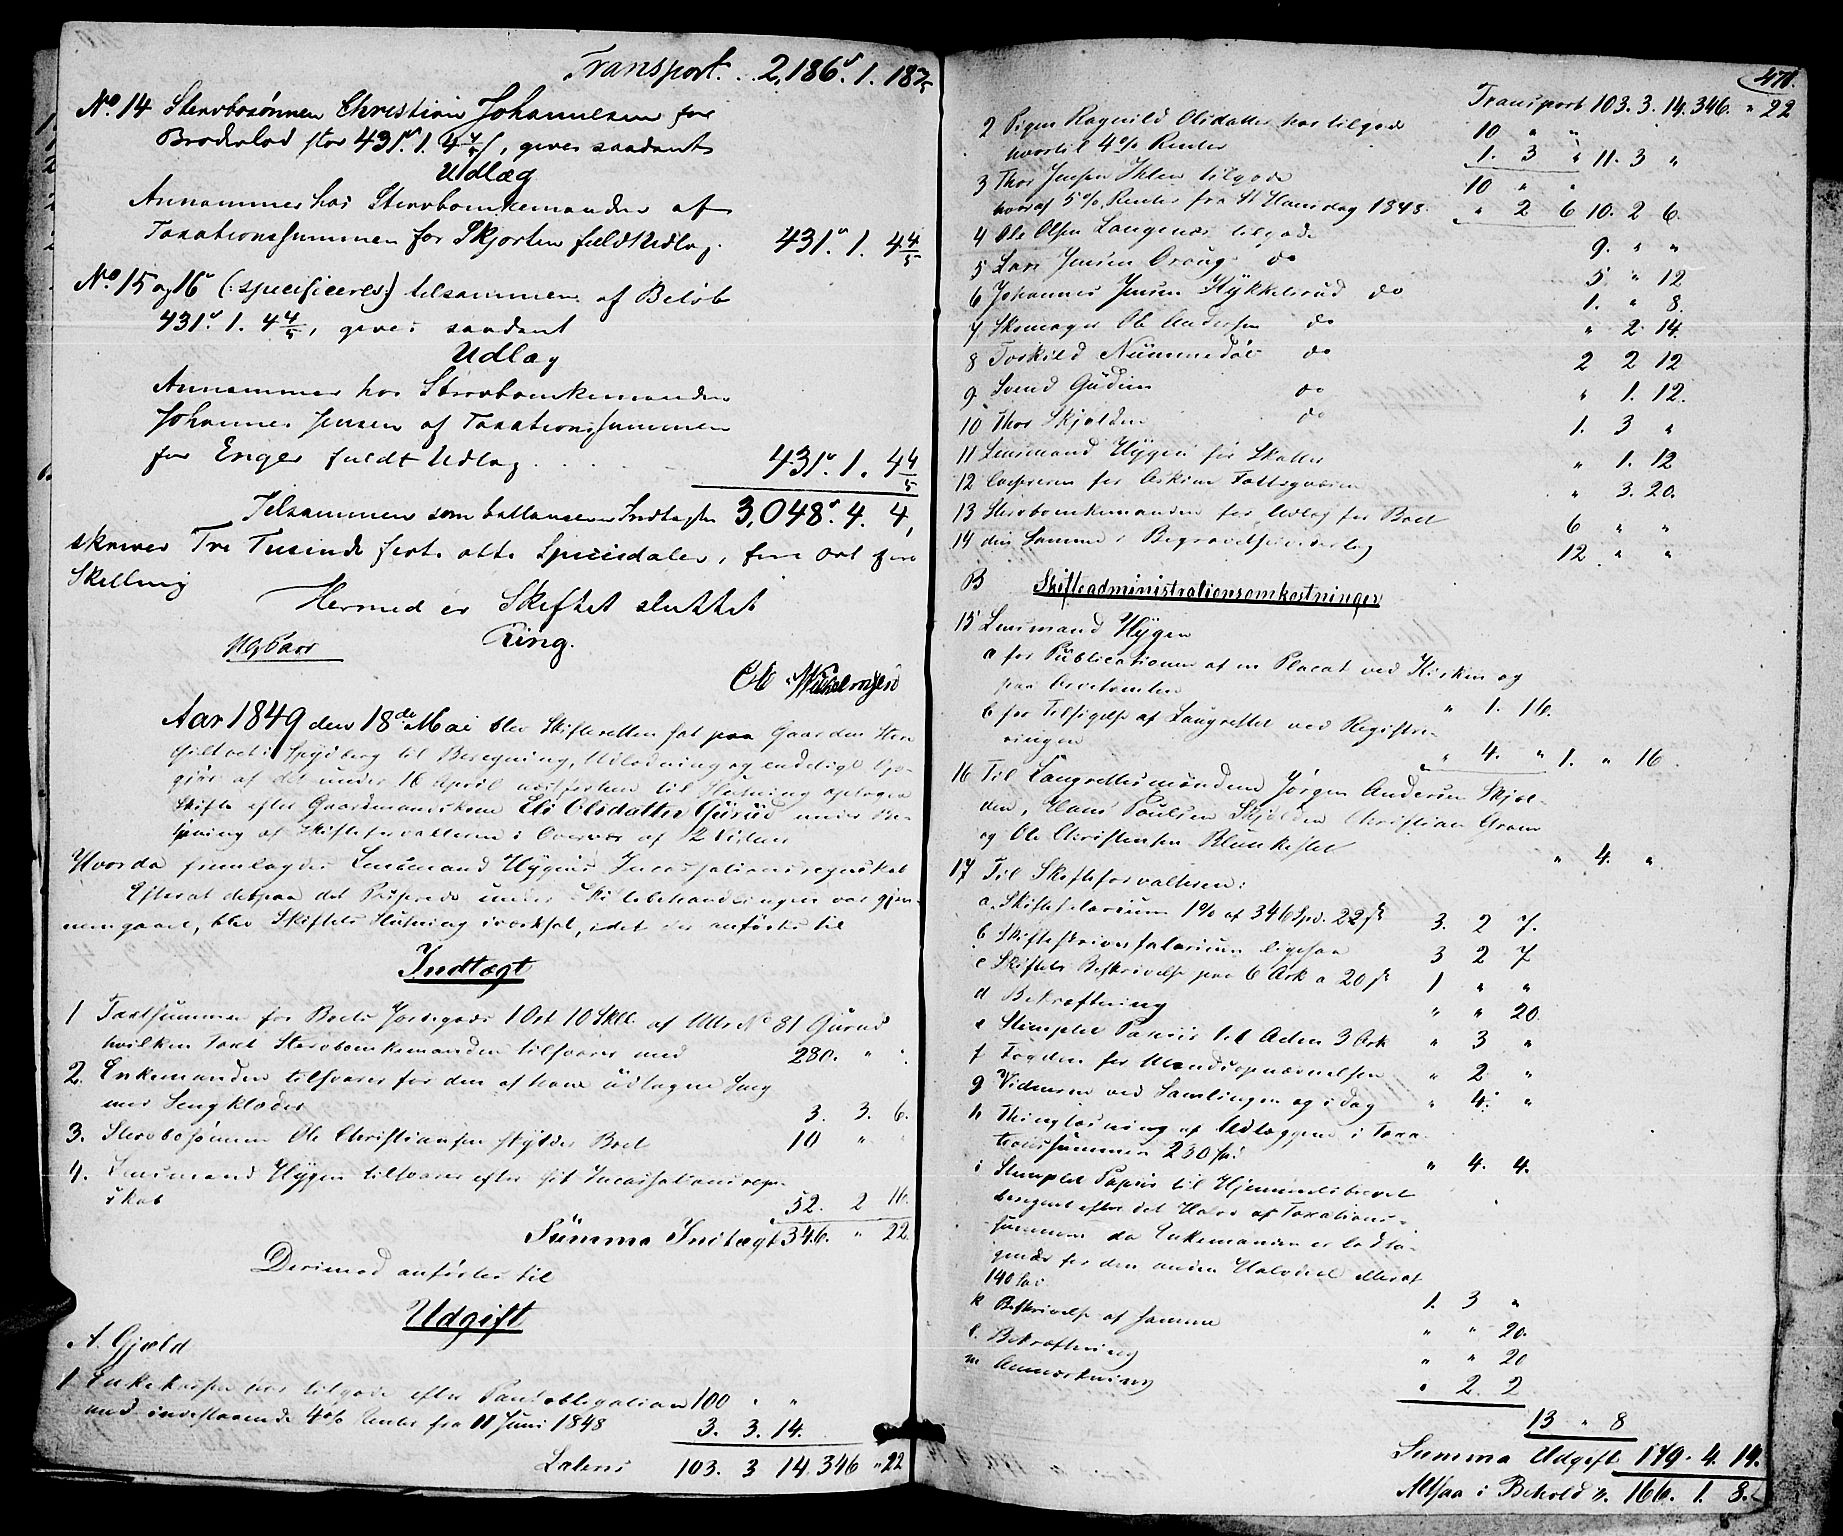 Transport. . 2,186. 1. 18
No. 14 Stervbosønnen Christian Johannesen for
Broderlod stor 431. 1. 4 4/5, gives saadant
Udlæg
Annammes hos Stervboenkemanden af
Taxationssummen for Skjorten fuldt Udlæg. 431. 1. 4 4/5
No. 15 og 16 (: specificeres :) tilsammen af Beløb
431. 1. 4 4/5, gives saadant
Udlæg
Annammes hos Stervboenkemanden
Johannes Jensen af Taxationssummen
for Enger fuldt Udlæg . . . 431. 1. 4 4/5
Tilsammen som ballancerer Indtægten 3,048. 4. 4,
skriver Tre Tusinde førti otte Speciedaler, fire ort fire
Skilling
Hermed er Skiftet sluttet
Ring.
Aar 1849 den 18de Mai blev Skifteretten sat paa Gaarden
i Spydberg til Beregning, Udlodning og endeligt
af det under 16 April til Slutning optagne
Skifte efter Gaardmandskone Eli Olsdatter Gurud under
af Skifteforvalteren i Overvær af 2 Vidner
Hvorda fremlagdes Lensmand Hygens Incassationsregnskab
Efterat derpaa det Passerede under Skiftebehandlingen var gjen-
nemgaaet, blev Skiftets Slutning iværksat, idet der anførtes til
Indtægt
1 Taxtsummen for Boets Jordegods 1 Ort 10 Skll. af Matr No 81 Gurud
hvilken Taxt Stervboenkemanden tilsvarer med 280. " "
2. Enkemanden tilsvarer for den af ham udtagne Seng
med Sengklæder 3. 3. 6.
3. Stervbosønnen Ole Christiansen skylder Boet 10 " "
4. Lensmand Hygen tilsvarer efter sit Incassationsregn-
skab 52. 2 16.
Summa Indtægt 346. " 22
Derimod anførtes til
Udgift
A. Gjæld
1 Enkekassen har tilgode efter Pantobligation 100 " "
med indestaaende 4% Renter fra 11 Juni 1848 3. 3. 14.
Lateris 103. 3 14. 346 " 22
471.
Transport 103. 3. 14. 346. " 22
2 Pigen Ragnild Olsdatter har tilgode 10 " "
hvortil 4% Renter 1. 3 " 11. 3 "
3 Thor Jensen Ihlen tilgode 10 " "
hvoraf 5% Renter fra St Hansdag 1848. " 2 6 10. 2 6.
4 Ole Olsen Langenæs tilgode 9. " "
5 Lars Jensen Draug do 5 " 12
6 Johannes Jensen Hykkelsrud do 1. " 8.
7. Skomager Ole Andersen do " 2 14.
8 Torkild Nummedøl do 2 2 12
9. Svend Gudim do " 1. 12.
10 Thor Skjolden do 1. 3 "
11 Lensmand Hygen for Skatter " 1. 12
12 for Askim Fattigvæsen " 3. 20.
13 Stervboenkemanden for Udlæg for Boet 6 " "
14 den Samme i Begravelsesvederlag 12 " "
B Skifteadministrationsomkostninger
15 Lensmand Hygen
a for Publicationen af en Placat ved Kirken og
paa " 1. 16.
b for Tilsigelse af Laugrettet ved Registre-
ringen " 4. " 1. " 16.
16 Til Laugrettesmændene Jørgen Andersen Skjol-
den, Hans Paulsen Skjolden Christian
og Ole Christensen " 4. "
17 Til Skifteforvalteren:
a. Skiftesalarium 1% af 346 Spd. 22 sk 3. 2 7.
b Skifteskriversalarium ligesaa 3 2 7
c Skiftets Beskrivelse paa 6 Ark a 20 sk 1 " "
d Bekræftning " " 20.
e Stemplet Papiir til Acten 3 Ark " 3 "
f Fogden for Mandsopnævnelsen " 2 "
g Vidnerne ved Samlingen og i dag " 4. "
h Thinglæsning af Udlæggene i Taxa-
tionssummen 280 Spd " 4. 4.
i Stemplet Papiir til Hjemmelsbrevet
beregnet efter det Halve af Taxations-
summen da Enkemanden er Lodta-
gende for den anden Halvdeel eller af
140 Spd 1. 3 "
k Beskrivelse af samme " " 20.
l. Bekræftning " " 20
m Anmærkning " 2. 2
13 " 8
Summa Udgift 179. 4. 14.
Altsaa i Behold 166. 1. 8.